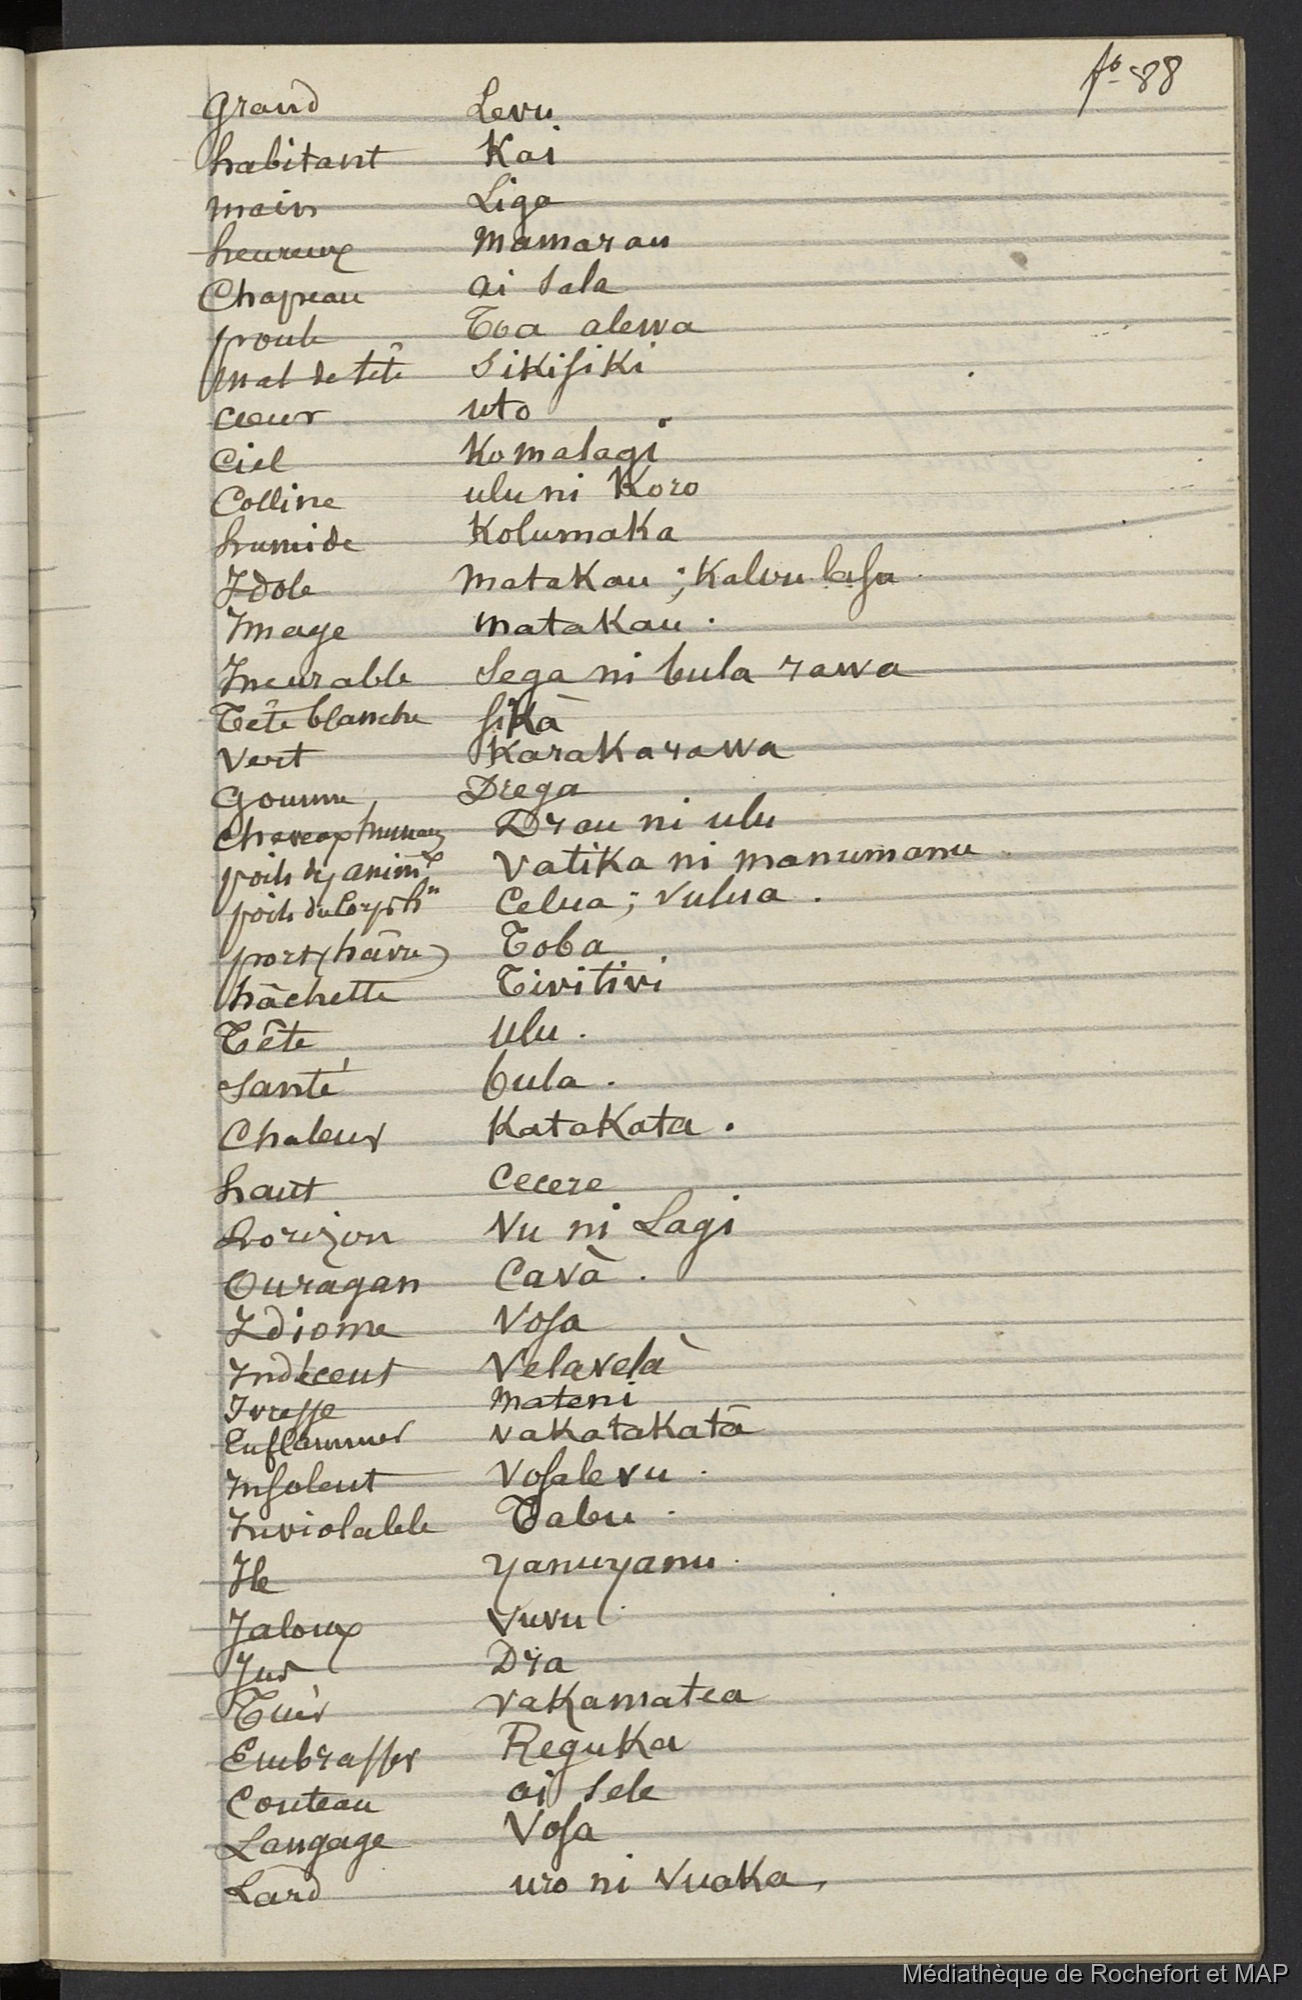 fo 88
Grand Levu
habitant Kai
main Liga
heureux Mamarau
Chapeau ai Sala
poule Toa alewa
mal de tête Sikisiki
Cœur uto
Ciel Komalagi
Colline ulu ni Koro
humide Kolumaka
Idole Matakau ; Kalou lasu
Image matakau .
Incurable Sega ni bula rawa
Tête blanche sikà
Vert Karakarawa
Gomme Drega
cheveux humains Drau ni ulu
poils des animx Vatika ni manumanu
poils du Corps hn Celua ; Vulua .
port (hâvre) Toba
hâchette Tivitivi
Tête Ulu .
Santé bula .
Chaleur Katakata .
haut Cecere
horizon Vu ni Lagi
Ouragan Cavà .
Idiome Vosa
Indécent Velavelà
Ivresse Mateni
Enflammer vakatakatà
Insolent Vosalevu .
Inviolable Tabu .
Ile Yanuyanu .
Jaloux Vuvu
Jus Dra
Tuer vakamatea
Embrasser Reguka
Couteau ai Sele
Langage Vosa
Lard uro ni Vuaka
Médiathèque de Rochefort et MAP